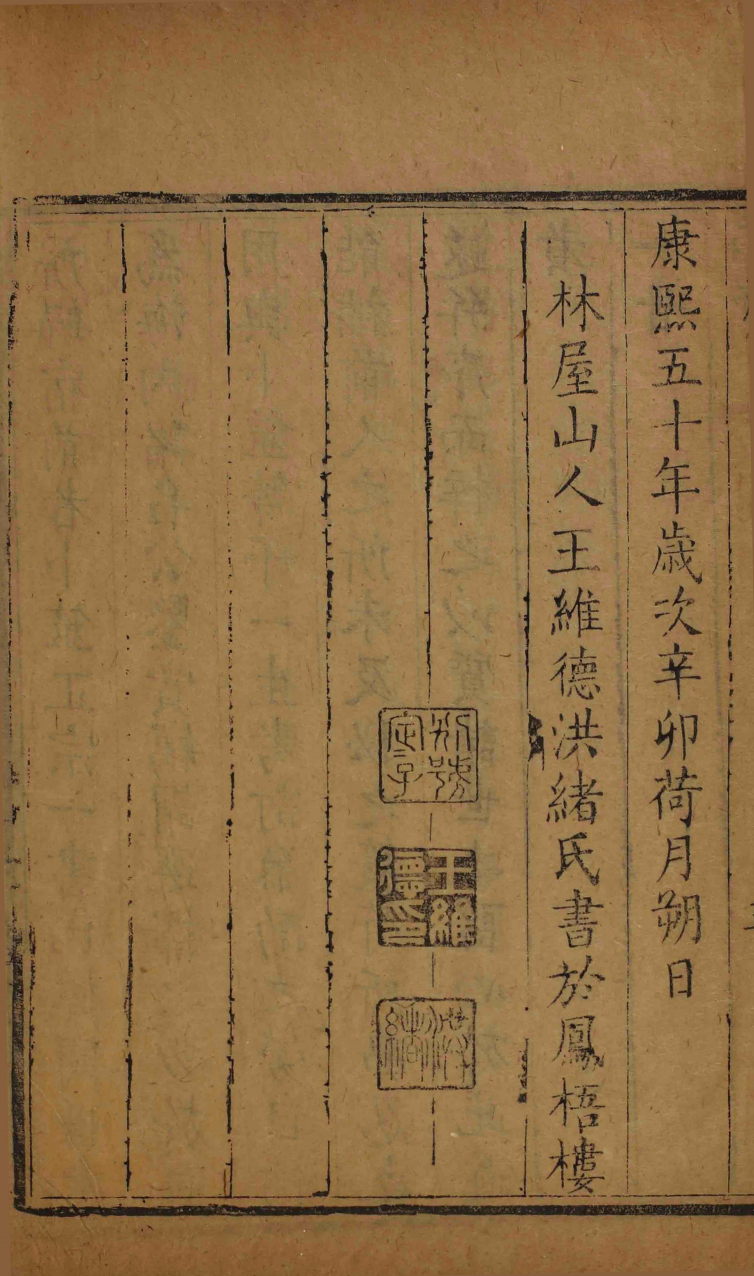 康熙五十年歲次辛卯荷月朔日
林屋山人王維德洪緒氏書於鳳梧樓
別號定子
王維德印
洪緒